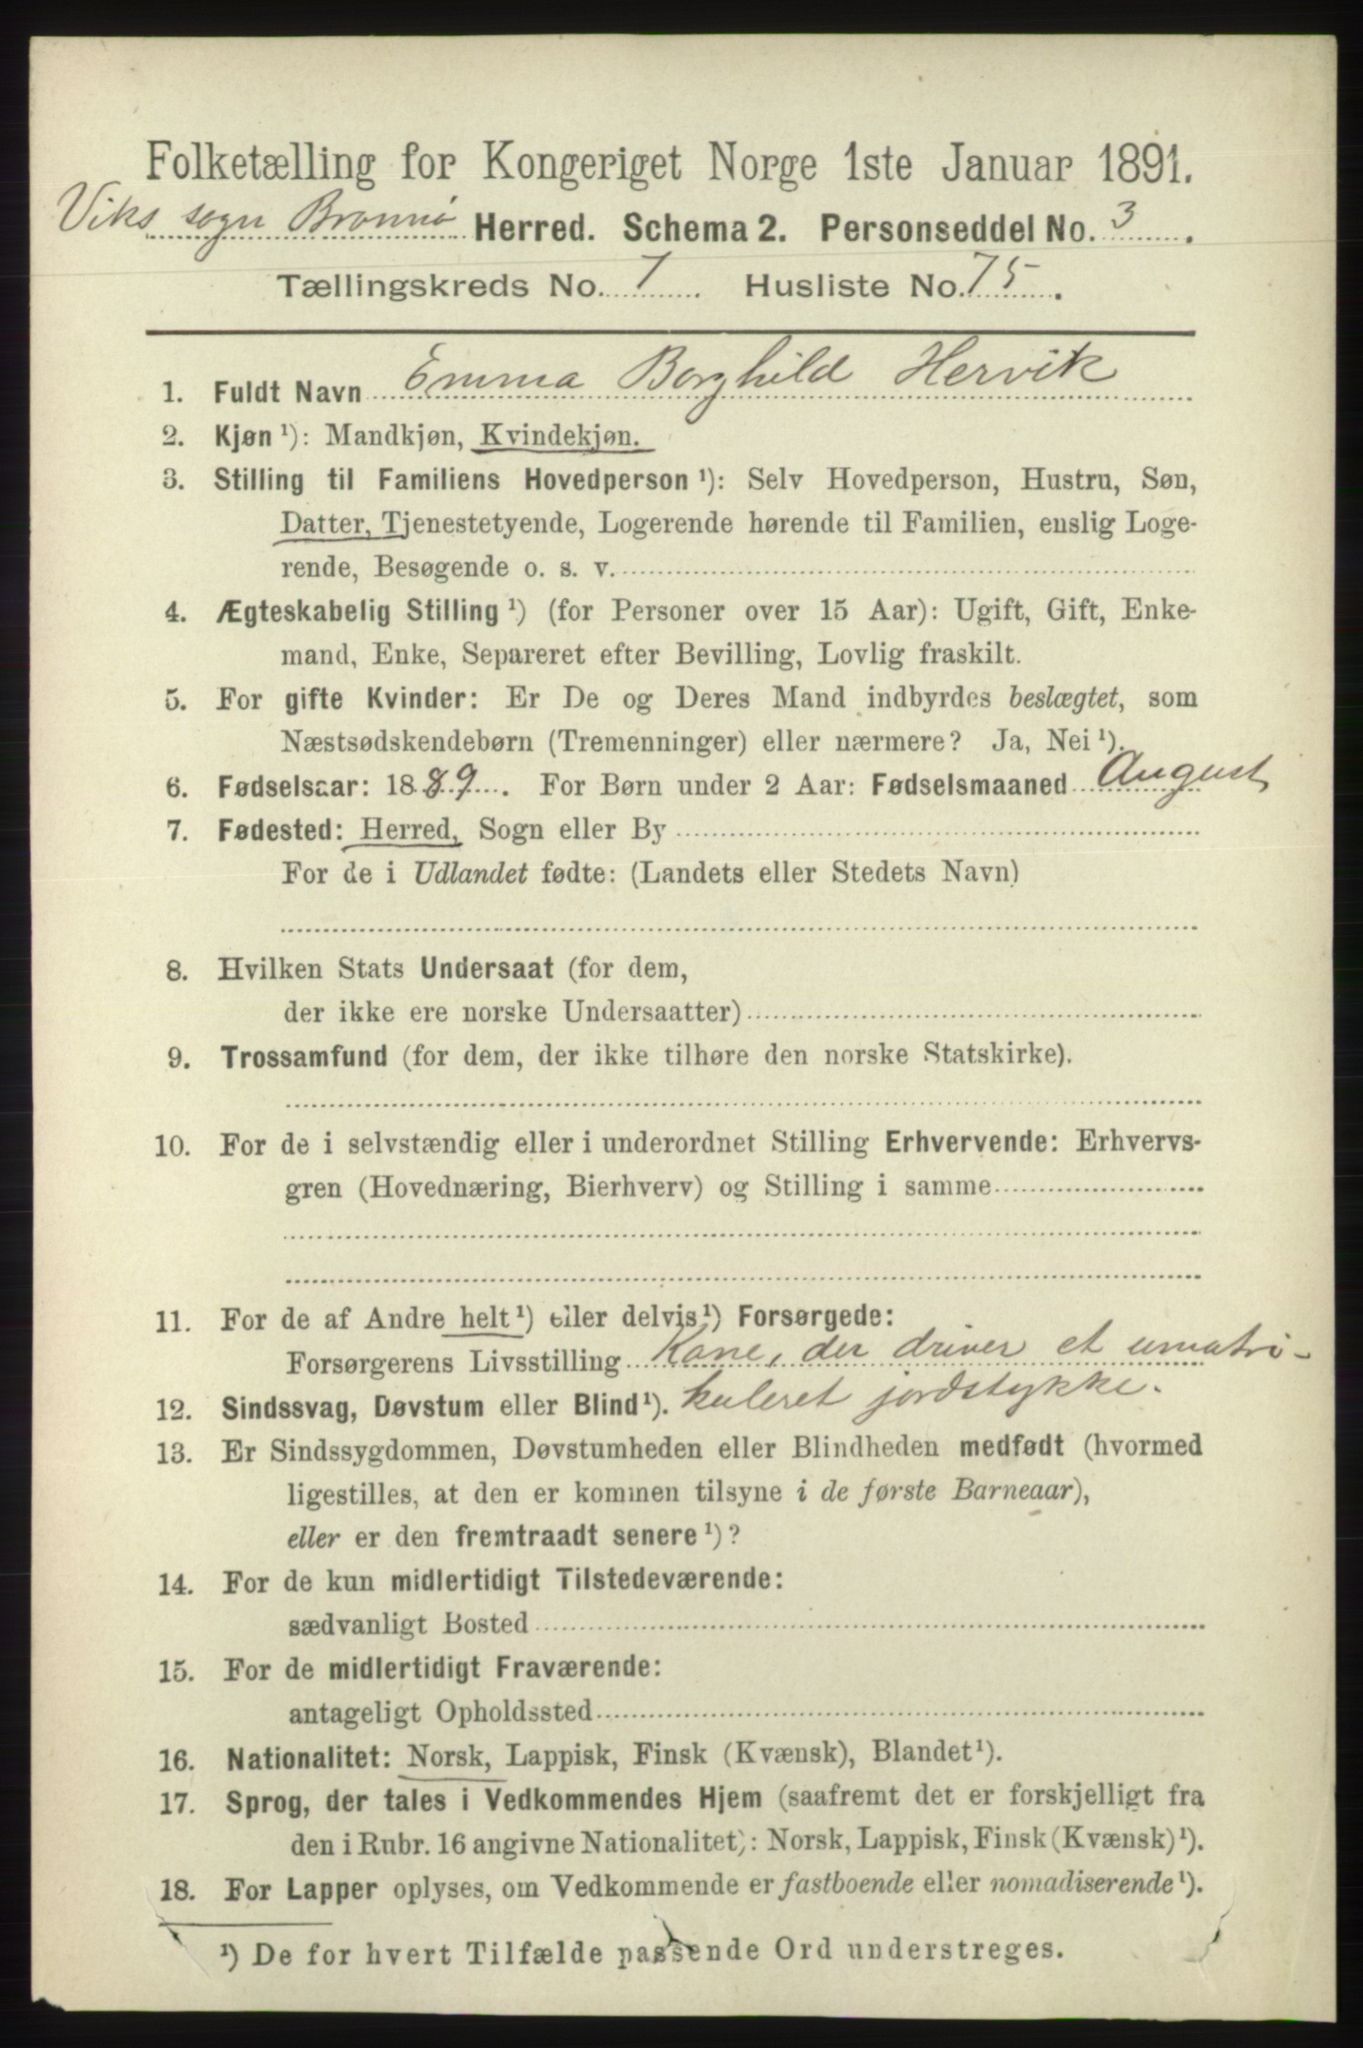 Folketælling for Kongeriget Norge 1ste Januar 1891.
Viks sogn Brønnø Herred. Schema 2. Personseddel No. 3.
Tællingskreds No. 7. Husliste No. 75.
1. Fuldt Navn Emma Borghild Hervik
2. Kjøn ¹): Mandkjøn, Kvindekjøn.
3. Stilling til Familiens Hovedperson ¹): Selv Hovedperson, Hustru, Søn,
Datter, Tjenestetyende, Logerende hørende til Familien, enslig Loge-
rende, Besøgende o. s. v.
4. Ægteskabelig Stilling ¹) (for Personer over 15 Aar): Ugift, Gift, Enke-
mand, Enke, Separeret efter Bevilling, Lovlig fraskilt.
5. For gifte Kvinder: Er De og Deres Mand indbyrdes beslægtet, som
Næstsødskendebørn (Tremenninger) eller nærmere? Ja, Nei ¹).
6. Fødselsaar: 1889. For Børn under 2 Aar: Fødselsmaaned August
7. Fødested: Herred, Sogn eller By
For de i Udlandet fødte: (Landets eller Stedets Navn)
8. Hvilken Stats Undersaat (for dem,
der ikke ere norske Undersaatter)
9. Trossamfund (for dem, der ikke tilhøre den norske Statskirke).
10. For de i selvstændig eller i underordnet Stilling Erhvervende: Erhvervs-
gren (Hovednæring, Bierhverv) og Stilling i samme
11. For de af Andre helt ¹) eller delvis ¹) Forsørgede:
Forsørgerens Livsstilling Kone, der driver et umatri-
12. Sindssvag, Døvstum eller Blind ¹). kuleret jordstykke.
13. Er Sindssygdommen, Døvstumheden eller Blindheden medfødt (hvormed
ligestilles, at den er kommen tilsyne i de første Barneaar),
eller er den fremtraadt senere ¹)?
14. For de kun midlertidigt Tilstedeværende:
sædvanligt Bosted
15. For de midlertidigt Fraværende:
antageligt Opholdssted
16. Nationalitet: Norsk, Lappisk, Finsk (Kvænsk), Blandet ¹).
17. Sprog, der tales i Vedkommendes Hjem (saafremt det er forskjelligt fra
den i Rubr. 16 angivne Nationalitet): Norsk, Lappisk, Finsk (Kvænsk) ¹).
18. For Lapper oplyses, om Vedkommende er fastboende eller nomadiserende ¹).
¹) De for hvert Tilfælde passende Ord understreges.